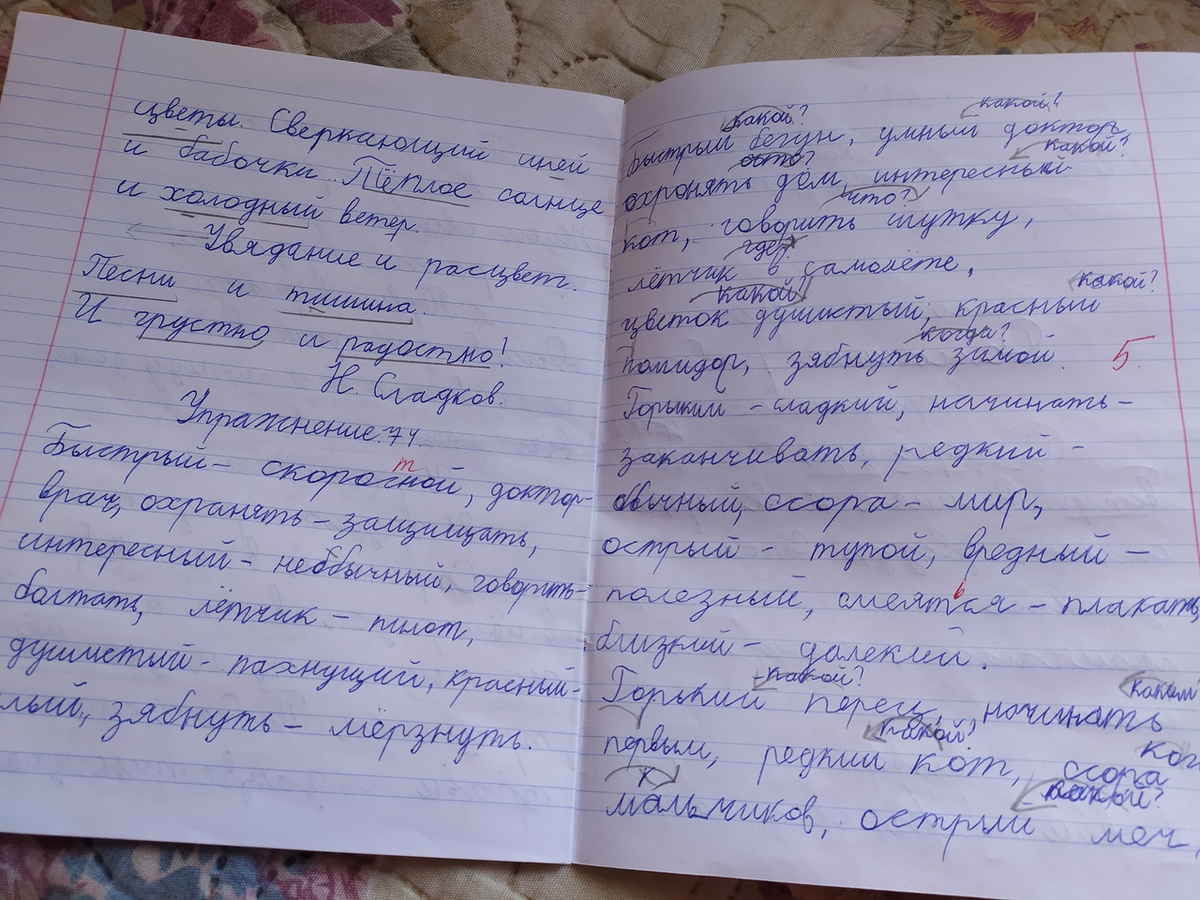 цветы. Сверкающий иней
и бабочки. Тёплое солнце
и холодный ветер.
Увядание и расцвет.
Песни и тишина.
И грустно и радостно!
Н. Сладков.
Упражнение 74.
т
Быстрый – скоросной, доктор-
врач, охранять – защищать,
интересный – необбычный, говорить-
болтать, лётчик – пилот,
душистый – пахнущий, красный-
лый, зябнуть – мёрзнуть.
какой? какой?
Быстрый бегун, умный доктор,
какой?
охронять дом, интересный
что?
кот, говорить шутку,
где?
лётчик в самолёте,
какой? какой?
цветок душистый, красный
когда?
помидор, зябнуть зимой. 5
Горький – сладкий, начинать –
заканчивать, редкий –
обычный, ссора – мир,
острый – тупой, вредный –
ь
полезный, смеятся – плакать,
близкий – далекий.
какой? каким
Горький перец, начинать
какой? ког
первым, редкий кот, ссора
какой?
мальчиков, острый меч,